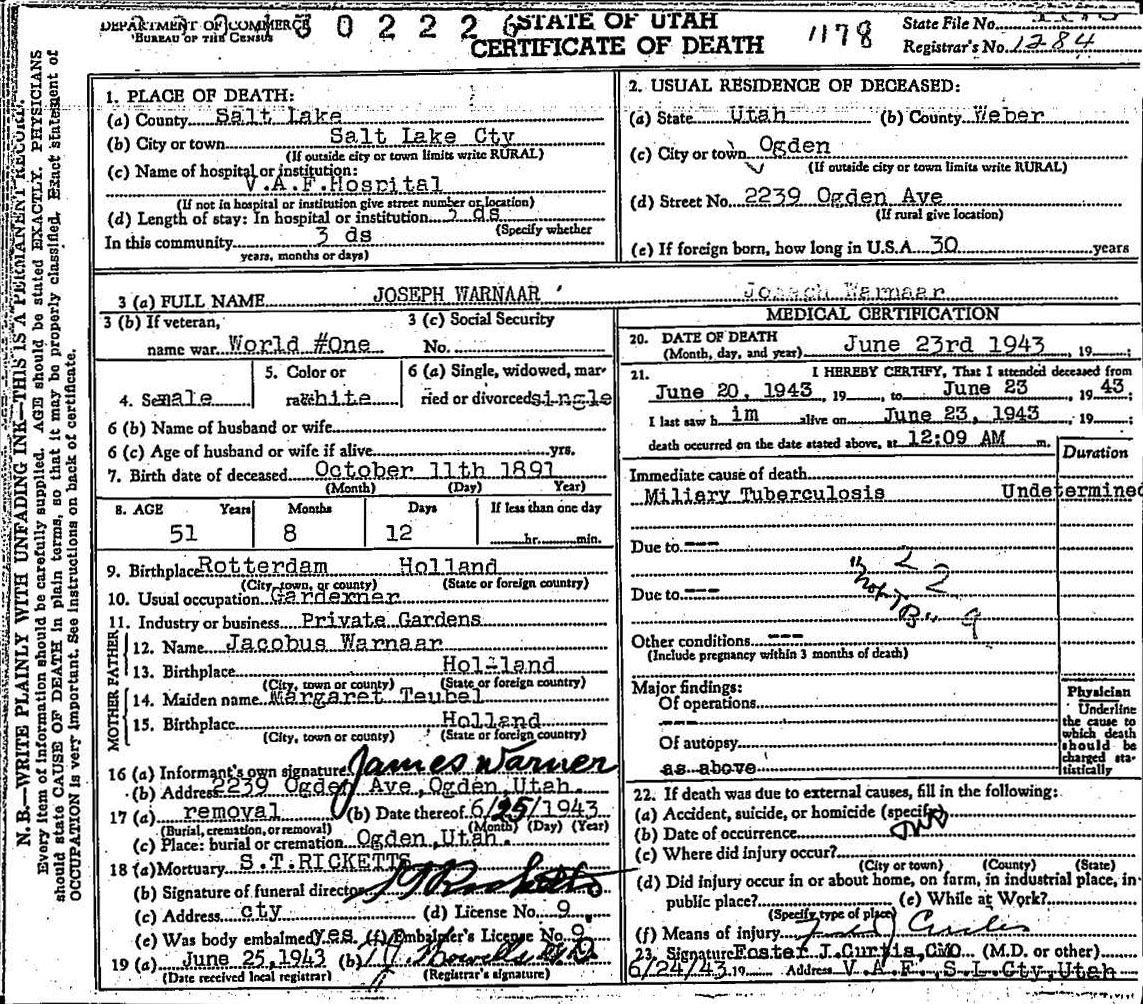 DEPARTMENT OF COMMERCE
BUREAU OF THE CENSUS
3 0 2 2 2 6
STATE OF UTAH
CERTIFICATE OF DEATH
1178
State File No.
Registrar's No. 1284
N.B.—WRITE PLAINLY WITH UNFADING INK—THIS IS A PERMANENT RECORD.
Every item of information should be carefully supplied. AGE should be stated EXACTLY. PHYSICIANS
should state CAUSE OF DEATH in plain terms, so that it may be properly classified. Exact statement of
OCCUPATION is very important. See instructions on back of certificate.
1. PLACE OF DEATH:
(a) County Salt Lake
(b) City or town Salt Lake Cty
(If outside city or town limits write RURAL)
(c) Name of hospital or institution:
V.A.F.Hospital
(If not in hospital or institution give street number or location)
(d) Length of stay: In hospital or institution 3 ds
(Specify whether
In this community 3 ds
years, months or days)
2. USUAL RESIDENCE OF DECEASED:
(a) State Utah (b) County Weber
(c) City or town Ogden
(If outside city or town limits write RURAL)
(d) Street No. 2239 Ogden Ave
(If rural give location)
(e) If foreign born, how long in U.S.A. 30 years
3 (a) FULL NAME JOSEPH WARNAAR Joseph Warnaar
3 (b) If veteran,
name war World #One
3 (c) Social Security
No.
4. Sex male
5. Color or
race white
6 (a) Single, widowed, mar-
ried or divorced single
6 (b) Name of husband or wife
6 (c) Age of husband or wife if alive yrs.
7. Birth date of deceased October 11th 1891
(Month) (Day) Year)
8. AGE Years Months Days If less than one day
51 8 12 hr. min.
9. Birthplace Rotterdam Holland
(City, town, or county) (State or foreign country)
10. Usual occupation Garderner
11. Industry or business Private Gardens
FATHER
12. Name Jacobus Warnaar
13. Birthplace Holland
(City, town or county) (State or foreign country)
MOTHER
14. Maiden name Margaret Teubel
15. Birthplace Holland
(City, town or county) (State or foreign country)
16 (a) Informant's own signature James Warner
(b) Address 2239 Ogden Ave,Ogden,Utah.
17 (a) removal (b) Date thereof 6/25/1943
(Burial, cremation, or removal) (Month) (Day) (Year)
(c) Place: burial or cremation Ogden,Utah.
18 (a) Mortuary S.T.RICKETTS
(b) Signature of funeral director S T Ricketts
(c) Address cty (d) License No. 9.
(e) Was body embalmed yes (f) Embalmer's License No. 9
19 (a) June 25,1943 (b)
(Date received local registrar) (Registrar's signature)
MEDICAL CERTIFICATION
20. DATE OF DEATH
(Month, day, and year) June 23rd 1943, 19 ;
21. I HEREBY CERTIFY, That I attended deceased from
June 20, 1943, 19 , to June 23, 1943;
I last saw him alive on June 23, 1943, 19 ;
death occurred on the date stated above, at 12:09 AM m.
Duration
Immediate cause of death
Miliary Tuberculosis Undetermined
Due to ---
Due to ---
22
"not TB" 9
Other conditions ---
(Include pregnancy within 3 months of death)
Major findings:
Of operations
---
Of autopsy
as above
Physician
Underline
the cause to
which death
should be
charged sta-
tistically
22. If death was due to external causes, fill in the following:
(a) Accident, suicide, or homicide (specify)
(b) Date of occurrence
(c) Where did injury occur?
(City or town) (County) (State)
(d) Did injury occur in or about home, on farm, in industrial place, in
public place? (e) While at Work?
(Specify type of place)
(f) Means of injury
23. Signature Foster J.Curtis,CMO (M.D. or other)
6/24/43 19 Address V.A.F.,S.L.Cty,Utah